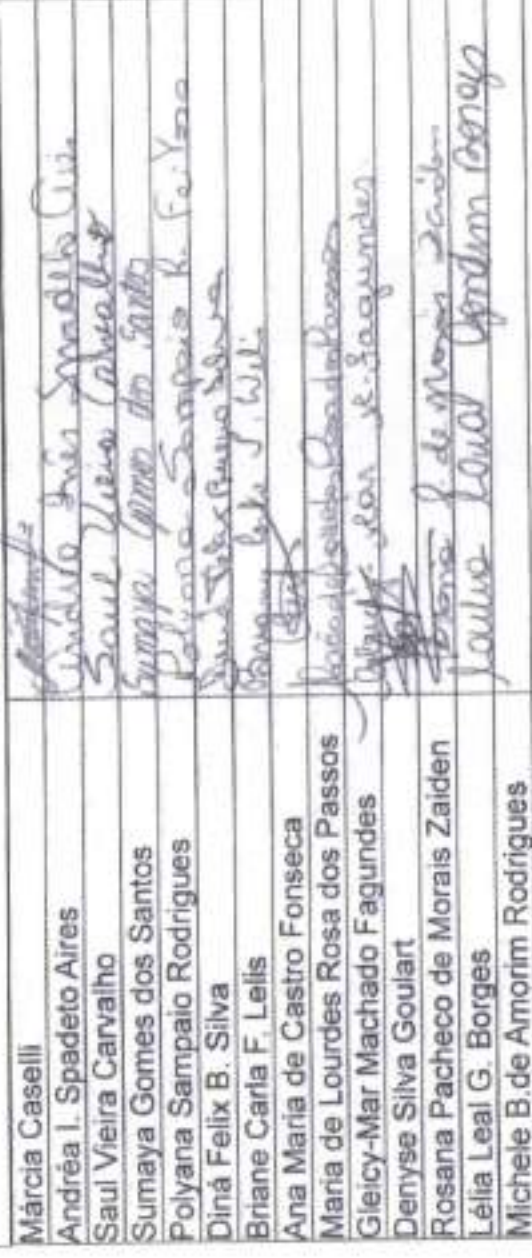 Márcia Caselli
Andréa I. Spadeto Aires Andréa Inês Spadeto Aires
Saul Vieira Carvalho Saul Vieira Carvalho
Sumaya Gomes dos Santos Sumaya Gomes dos Santos
Polyana Sampaio Rodrigues Polyana Sampaio R. Feitosa
Diná Felix B. Silva Diná Felix Bueno Silva
Briane Carla F. Lelis
Ana Maria de Castro Fonseca
Maria de Lourdes Rosa dos Passos Maria de Lourdes Rosa dos Passos
Gleicy-Mar Machado Fagundes Fagundes
Denyse Silva Goulart
Rosana Pacheco de Morais Zaiden P. de Morais Zaiden
Lélia Leal G. Borges Borges
Michele B. de Amorim Rodrigues